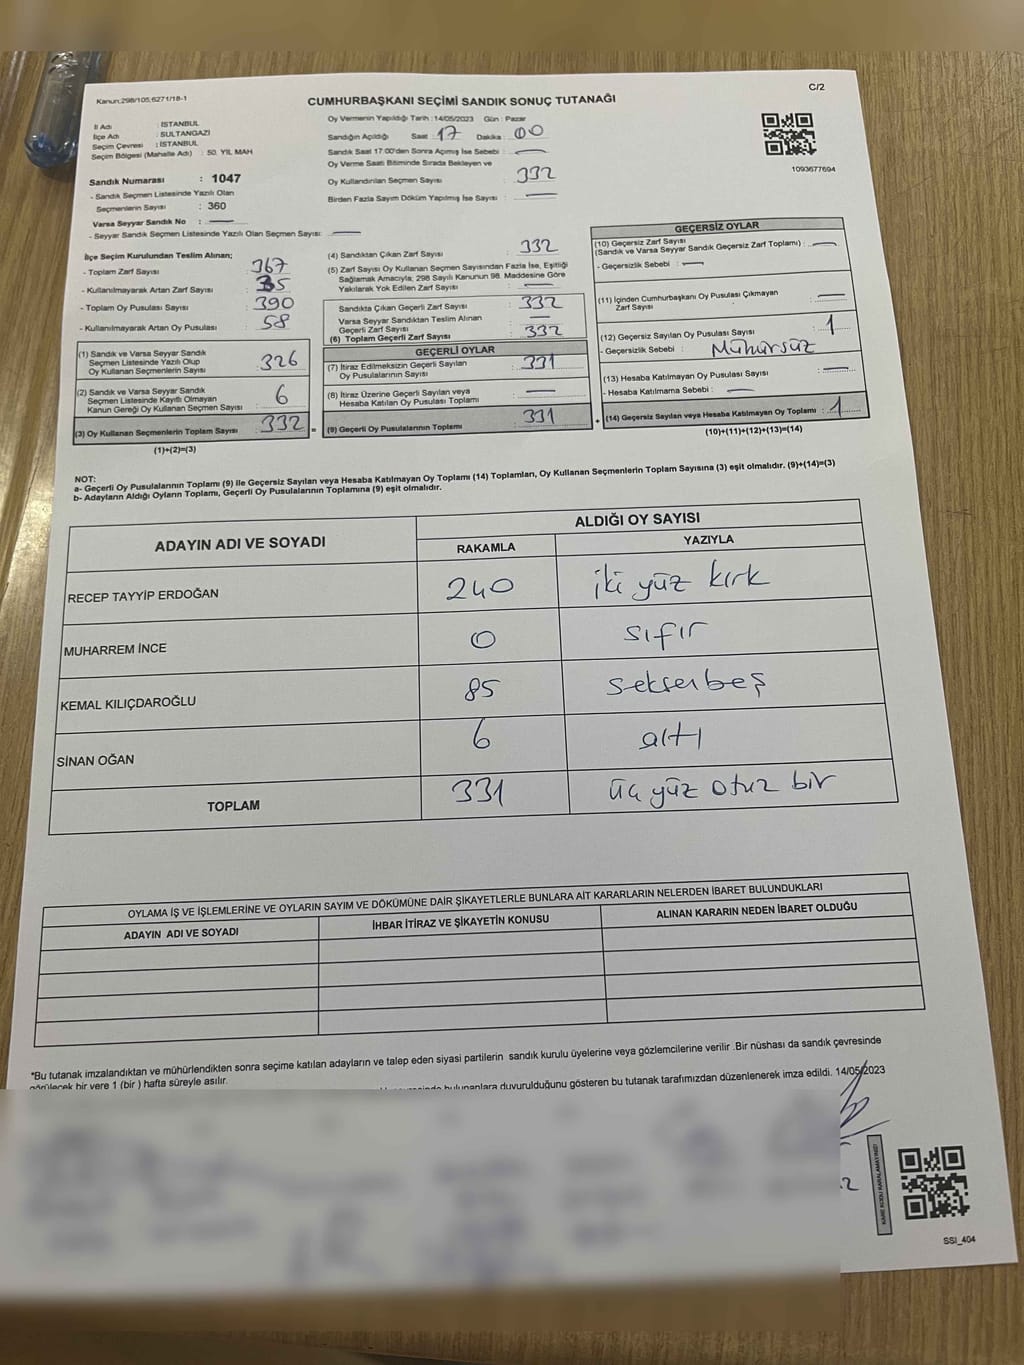 Kanun:298/105;6271/18-1
C/2
CUMHURBAŞKANI SEÇİMİ SANDIK SONUÇ TUTANAĞI
İl Adı : İSTANBUL
İlçe Adı : SULTANGAZİ
Seçim Çevresi : İSTANBUL
Seçim Bölgesi (Mahalle Adı) : 50. YIL MAH
Sandık Numarası : 1047
- Sandık Seçmen Listesinde Yazılı Olan
Seçmenlerin Sayısı : 360
Varsa Seyyar Sandık No : —
- Seyyar Sandık Seçmen Listesinde Yazılı Olan Seçmen Sayısı: —
Oy Vermenin Yapıldığı Tarih : 14/05/2023 Gün : Pazar
Sandığın Açıldığı Saat : 17 Dakika : 00
Sandık Saat 17:00'den Sonra Açılmış İse Sebebi : —
Oy Verme Saati Bitiminde Sırada Bekleyen ve
Oy Kullandırılan Seçmen Sayısı : 332
Birden Fazla Sayım Döküm Yapılmış İse Sayısı : —
1093677694
İlçe Seçim Kurulundan Teslim Alınan;
- Toplam Zarf Sayısı : 367
- Kullanılmayarak Artan Zarf Sayısı : 35
- Toplam Oy Pusulası Sayısı : 390
- Kullanılmayarak Artan Oy Pusulası : 58
(1) Sandık ve Varsa Seyyar Sandık
Seçmen Listesinde Yazılı Olup
Oy Kullanan Seçmenlerin Sayısı : 326
(2) Sandık ve Varsa Seyyar Sandık
Seçmen Listesinde Kayıtlı Olmayan
Kanun Gereği Oy Kullanan Seçmen Sayısı : 6
(3) Oy Kullanan Seçmenlerin Toplam Sayısı : 332 =
(1)+(2)=(3)
(4) Sandıktan Çıkan Zarf Sayısı : 332
(5) Zarf Sayısı Oy Kullanan Seçmen Sayısından Fazla İse, Eşitliği
Sağlamak Amacıyla; 298 Sayılı Kanunun 98. Maddesine Göre
Yakılarak Yok Edilen Zarf Sayısı : —
Sandıkta Çıkan Geçerli Zarf Sayısı : 332
Varsa Seyyar Sandıktan Teslim Alınan
Geçerli Zarf Sayısı : —
(6) Toplam Geçerli Zarf Sayısı : 332
GEÇERLİ OYLAR
(7) İtiraz Edilmeksizin Geçerli Sayılan
Oy Pusulalarının Sayısı : 331
(8) İtiraz Üzerine Geçerli Sayılan veya
Hesaba Katılan Oy Pusulası Toplamı : —
(9) Geçerli Oy Pusulalarının Toplamı : 331 +
GEÇERSİZ OYLAR
(10) Geçersiz Zarf Sayısı
(Sandık ve Varsa Seyyar Sandık Geçersiz Zarf Toplamı) : —
- Geçersizlik Sebebi : —
(11) İçinden Cumhurbaşkanı Oy Pusulası Çıkmayan
Zarf Sayısı : —
(12) Geçersiz Sayılan Oy Pusulası Sayısı : 1
- Geçersizlik Sebebi : Mühürsüz
(13) Hesaba Katılmayan Oy Pusulası Sayısı : —
- Hesaba Katılmama Sebebi : —
(14) Geçersiz Sayılan veya Hesaba Katılmayan Oy Toplamı : 1
(10)+(11)+(12)+(13)=(14)
NOT:
a- Geçerli Oy Pusulalarının Toplamı (9) ile Geçersiz Sayılan veya Hesaba Katılmayan Oy Toplamı (14) Toplamları, Oy Kullanan Seçmenlerin Toplam Sayısına (3) eşit olmalıdır. (9)+(14)=(3)
b- Adayların Aldığı Oyların Toplamı, Geçerli Oy Pusulalarının Toplamına (9) eşit olmalıdır.
ADAYIN ADI VE SOYADI
ALDIĞI OY SAYISI
RAKAMLA YAZIYLA
RECEP TAYYİP ERDOĞAN 240 iki yüz kırk
MUHARREM İNCE 0 sıfır
KEMAL KILIÇDAROĞLU 85 seksenbeş
SİNAN OĞAN 6 altı
TOPLAM 331 üç yüz otuz bir
OYLAMA İŞ VE İŞLEMLERİNE VE OYLARIN SAYIM VE DÖKÜMÜNE DAİR ŞİKAYETLERLE BUNLARA AİT KARARLARIN NELERDEN İBARET BULUNDUKLARI
ADAYIN ADI VE SOYADI İHBAR İTİRAZ VE ŞİKAYETİN KONUSU ALINAN KARARIN NEDEN İBARET OLDUĞU
*Bu tutanak imzalandıktan ve mühürlendikten sonra seçime katılan adayların ve talep eden siyasi partilerin sandık kurulu üyelerine veya gözlemcilerine verilir .Bir nüshası da sandık çevresinde
görülecek bir yere 1 (bir ) hafta süreyle asılır.
bulunanlara duyurulduğunu gösteren bu tutanak tarafımızdan düzenlenerek imza edildi. 14/05/2023
KARE KODU KARALAMAYINIZ!
SSI_404